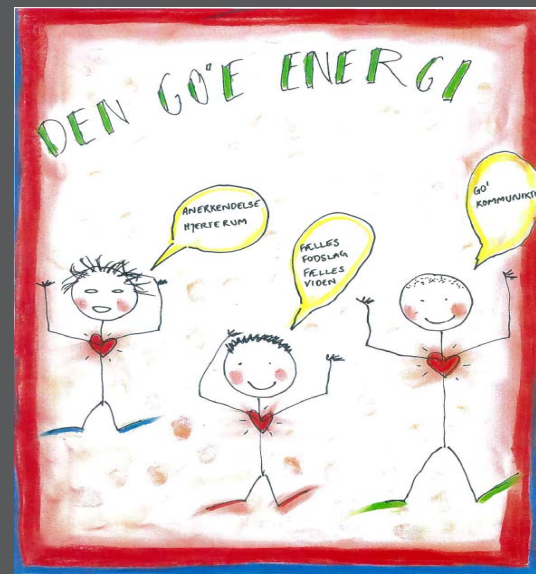 DEN GO'E ENERGI
ANERKENDELSE
HJERTERUM
FÆLLES
FODSLAG
FÆLLES
VIDEN
GO'